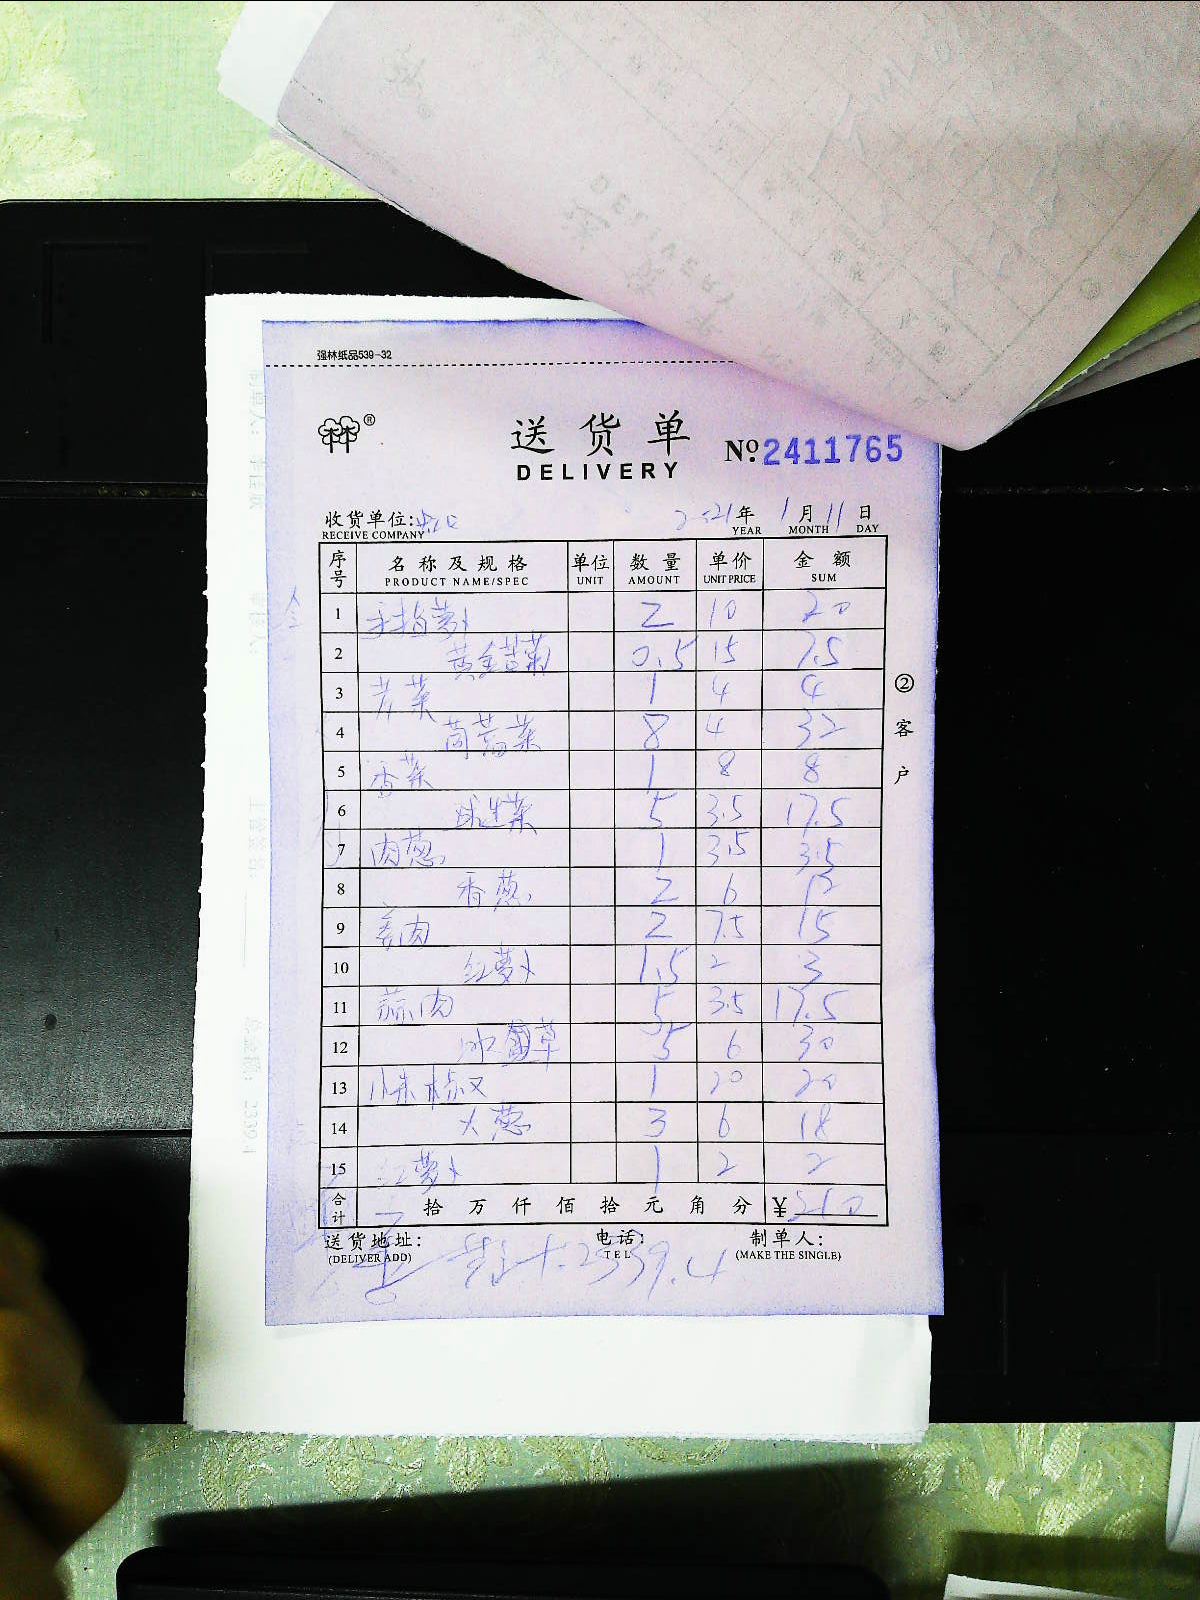 强林纸品539-32
林 ®
送货单
DELIVERY
No. 2411765
收货单位:
RECEIVE COMPANY
2021年 1月 11日
YEAR MONTH DAY
序号 名称及规格 单位 数量 单价 金额
PRODUCT NAME/SPEC UNIT AMOUNT UNIT PRICE SUM
1 手指萝卜 2 10 20
2 黄金苦菊 0.5 15 7.5
3 芹菜 1 4 4
4 茼蒿菜 8 4 32
5 香菜 1 8 8
6 球生菜 5 3.5 17.5
7 肉葱 1 3.5 3.5
8 香葱 2 6 12
9 姜肉 2 7.5 15
10 红萝卜 1.5 2 3
11 蒜肉 5 3.5 17.5
12 冰草 5 6 30
13 小米椒 1 20 20
14 大葱 3 6 18
15 红萝卜 1 2 2
合计 拾 万 仟 佰 拾 元 角 分 ¥210
送货地址: 电话: 制单人:
(DELIVER ADD) TEL (MAKE THE SINGLE)
2339.4
②客户